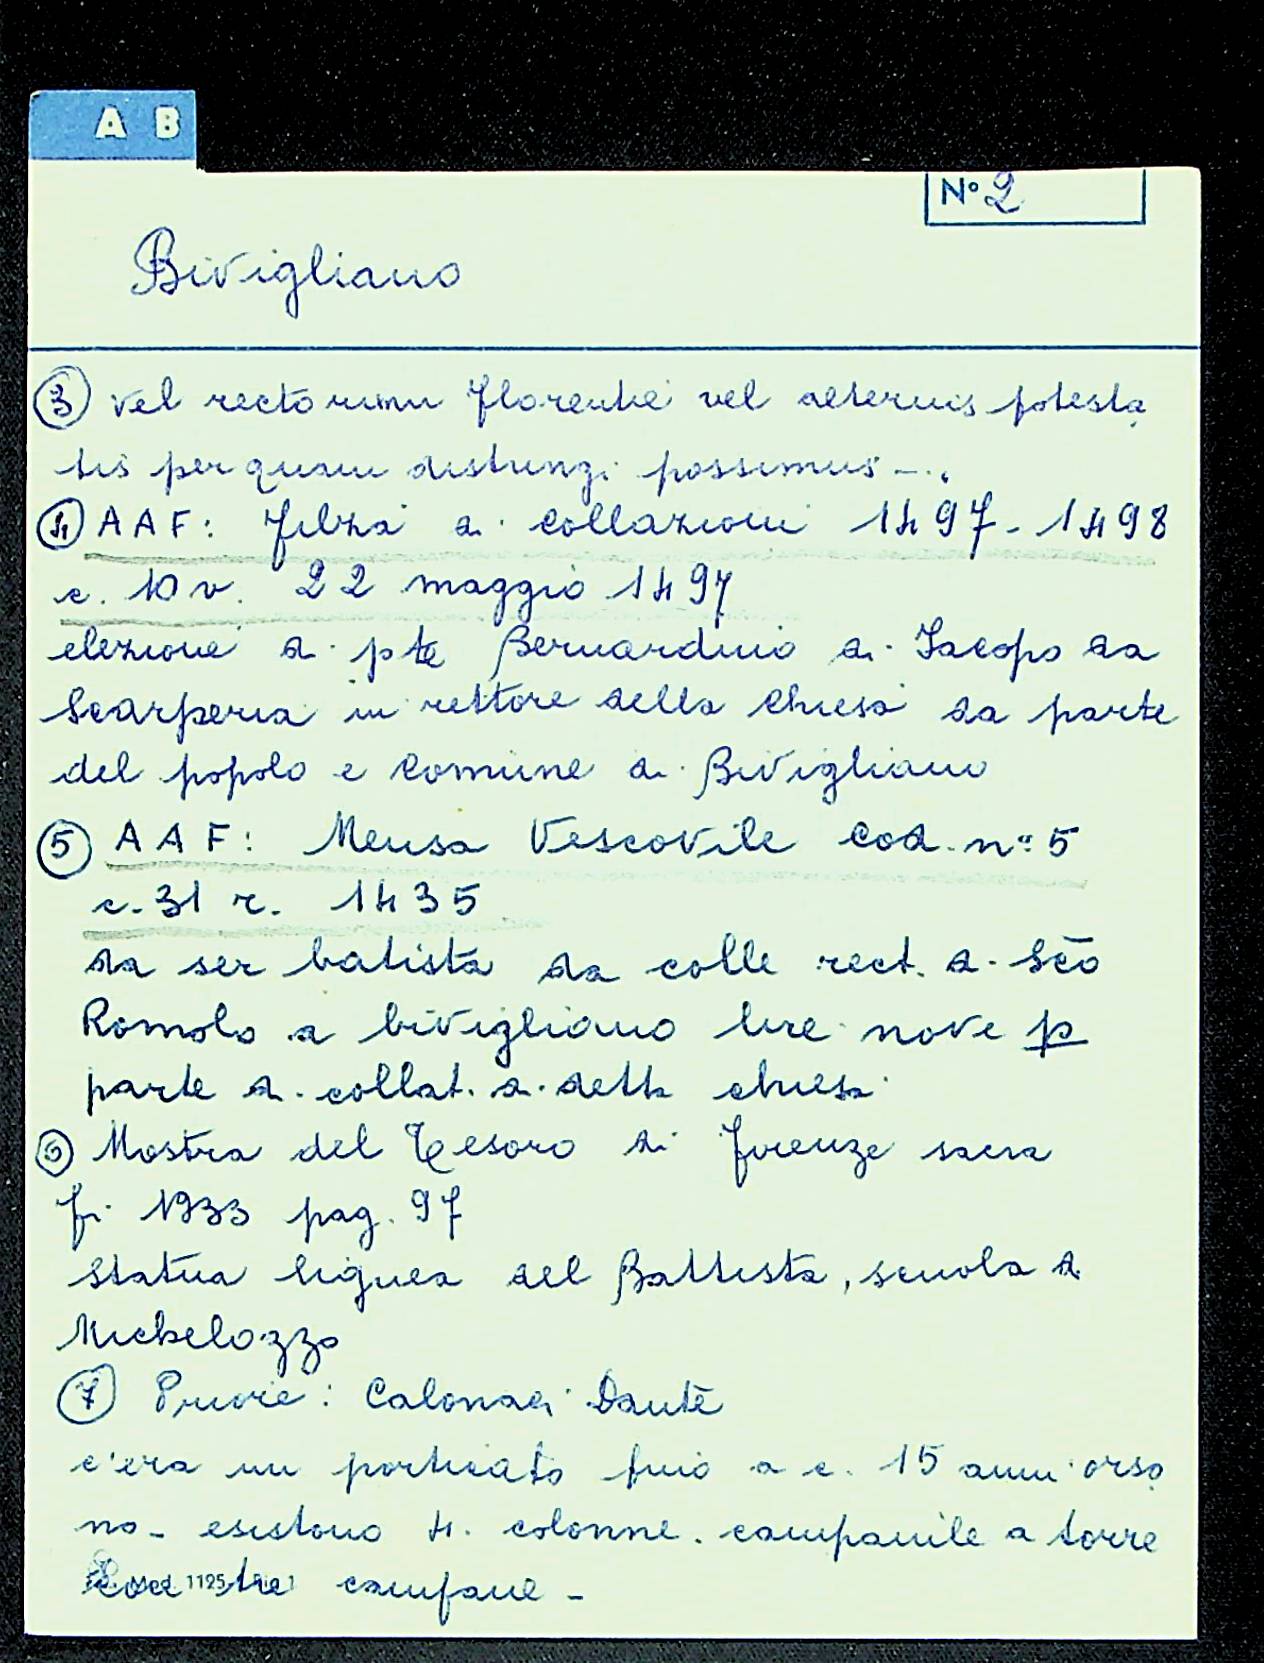 A B
N° 2
Bivigliano
③ vel rectorum Florentie vel aeternis potesta
tis per quam distungi possimus -..
④ AAF: Filza di collazioni 1497-1498
c. 10 v. 22 maggio 1497
elezione di pte Bernardino di Iacopo da
Scarperia in rettore della chiesa da parte
del popolo e comune di Bivigliano
⑤ AAF: Mensa Vescovile Cod. n° 5
c. 31 r. 1435
da ser batista da colle rect. di Sc̄o
Romolo a bivigliano lire nove p
parte di collat. di detta chiesa
⑥ Mostra del Tesoro di Firenze sacra
Fi 1933 pag. 97
statua lignea del Battista, scuola di
Michelozzo
⑦ Priore: Calonaci Dante
c'era un porticato fino a c. 15 anni orso
no - esistono 4 colonne. campanile a torre
con tre campane -